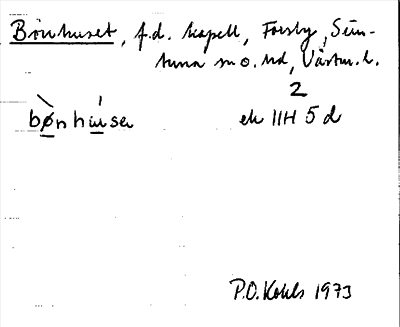 Bönhuset, f.d. kapell, Forsby, Simtuna
tuna sn o. hd, Västm. l.
2
bø̀nhúsen
ek 11H 5 d
P.O. Kohls 1973